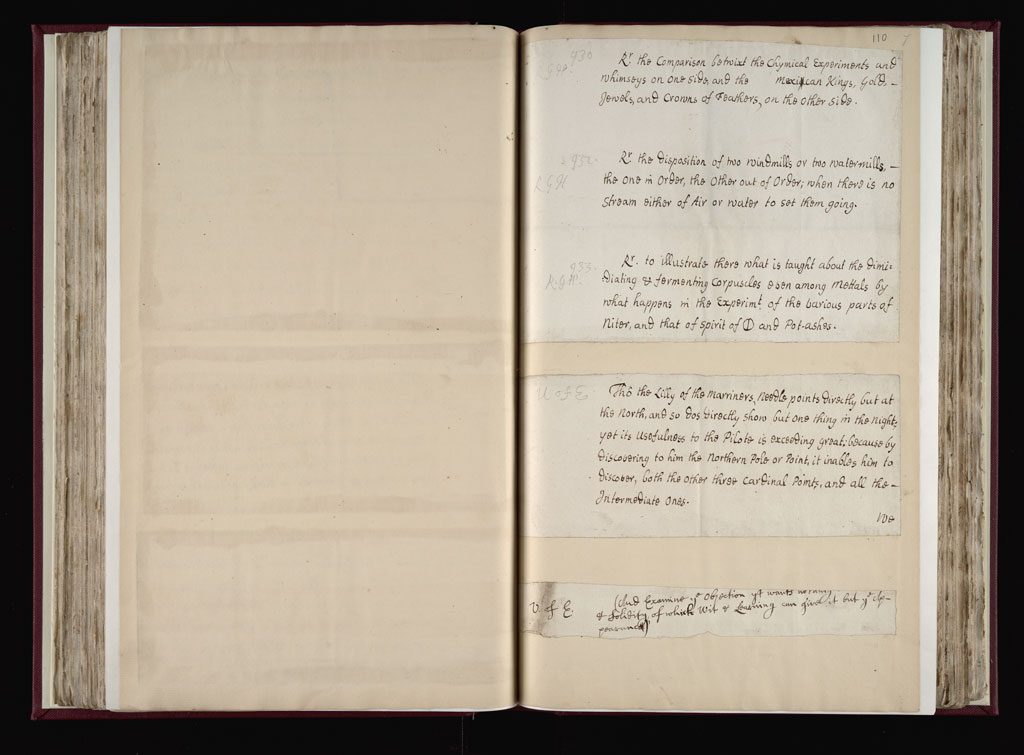 110
930
Rr. the Comparison betwixt the Chymical Experiments and
whimseys on one side, and the Mexican Kings, Gold, –
Jewels, and Crowns of Feathers, on the other side.
932.
Rr. the disposition of two windmills or two watermills, –
the one in Order, the Other out of Order; when there is no
Stream either of Air or water to set them going.
933.
Rr. to illustrate there what is taught about the dimi-
diating & fermenting Corpuscles even among Mettals by
what happens in the Experimt. of the various parts of
Niter, and that of Spirit of D and Pot-ashes.
Thô the Lilly of the Marriners Needle points directly but at
the North, and so dos directly show but one thing in the Night;
yet its Usefulness to the Pilote is exceeding great; because by
discovering to him the Northern Pole or Point, it inables him to
discover, both the other three Cardinal Points, and all the –
Intermediate Ones.
We
V. of E.
(And Examine ye Objection yt wants
& Solidity, of which Wit & Learning can give it but ye Ap-
pearance)